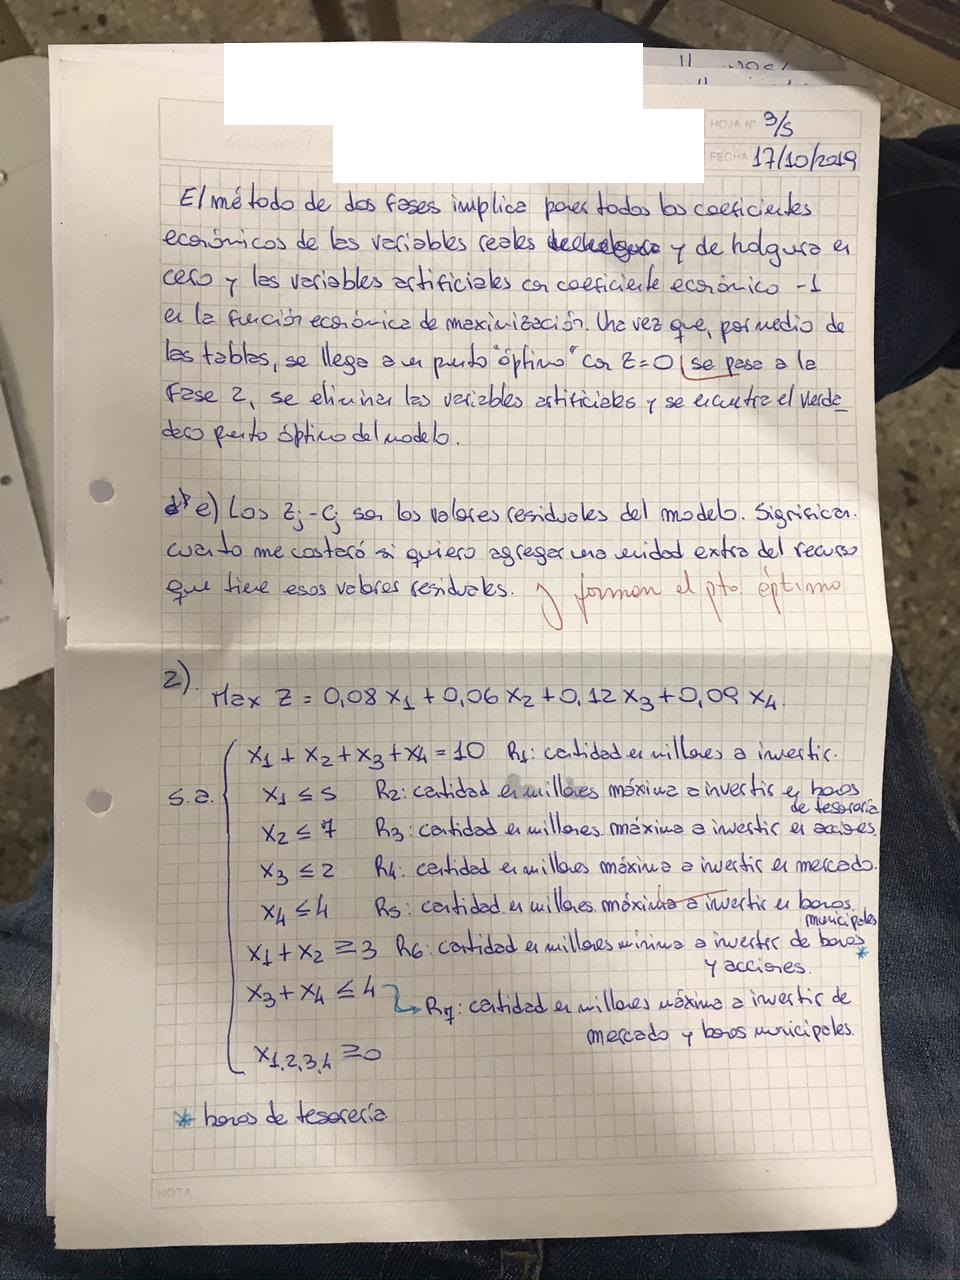 HOJA N° 3/5
FECHA 17/10/2019
El método de dos fases implica poner todos los coeficientes
económicos de las variables reales y de holgura en
cero y las variables artificiales con coeficiente económico -1
en la función económica de maximización. Una vez que, por medio de
las tablas, se llega a un punto "óptimo" con Z=0 se pasa a la
fase 2, se eliminan las variables artificiales y se encuentra el verda_
dero punto óptimo del modelo.
e) Los Zj-Cj son los valores residuales del modelo. Significan
cuanto me costará si quiero agregar una unidad extra del recurso
que tiene esos valores residuales. y forman el pto. óptimo
2)
Max Z = 0,08 X1 + 0,06 X2 + 0,12 X3 + 0,09 X4.
X1 + X2 + X3 + X4 = 10 R1: cantidad en millones a invertir.
s.a. X1 ≤ 5 R2: cantidad en millones máxima a invertir en bonos
de tesorería
X2 ≤ 7 R3: cantidad en millones máxima a invertir en acciones
X3 ≤ 2 R4: cantidad en millones máxima a invertir en mercado.
X4 ≤ 4 R5: cantidad en millones máxima a invertir en bonos
municipales
X1 + X2 ≥ 3 R6: cantidad en millones mínima a invertir de bonos *
y acciones.
X3 + X4 ≤ 4 R7: cantidad en millones máxima a invertir de
mercado y bonos municipales.
X1,2,3,4 ≥ 0
* bonos de tesorería
NOTA